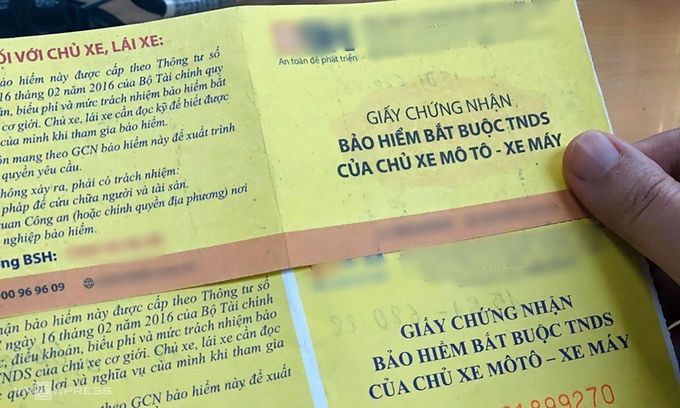 ỐI VỚI CHỦ XE, LÁI XE:
ảo hiểm này được cấp theo Thông tư số
16 tháng 02 năm 2016 của Bộ Tài chính quy
ản, biểu phí và mức trách nhiệm bảo hiểm bắt
cơ giới. Chủ xe, lái xe cần đọc kỹ để biết được
của mình khi tham gia bảo hiểm.
ôn mang theo GCN bảo hiểm này để xuất trình
quyền yêu cầu.
hông xảy ra, phải có trách nhiệm:
pháp để cứu chữa người và tài sản.
quan Công an (hoặc chính quyền địa phương) nơi
nghiệp bảo hiểm.
ng BSH:
00 96 96 09
An toàn để phát triển
GIẤY CHỨNG NHẬN
BẢO HIỂM BẮT BUỘC TNDS
CỦA CHỦ XE MÔ TÔ - XE MÁY
hận bảo hiểm này được cấp theo Thông tư
ngày 16 tháng 02 năm 2016 của Bộ Tài chính
c, điều khoản, biểu phí và mức trách nhiệm bảo
TNDS của chủ xe cơ giới. Chủ xe, lái xe cần đọc
quyền lợi và nghĩa vụ của mình khi tham gia
theo GCN bảo hiểm này để xuất
GIẤY CHỨNG NHẬN
BẢO HIỂM BẮT BUỘC TNDS
CỦA CHỦ XE MÔTÔ – XE MÁY
1899270